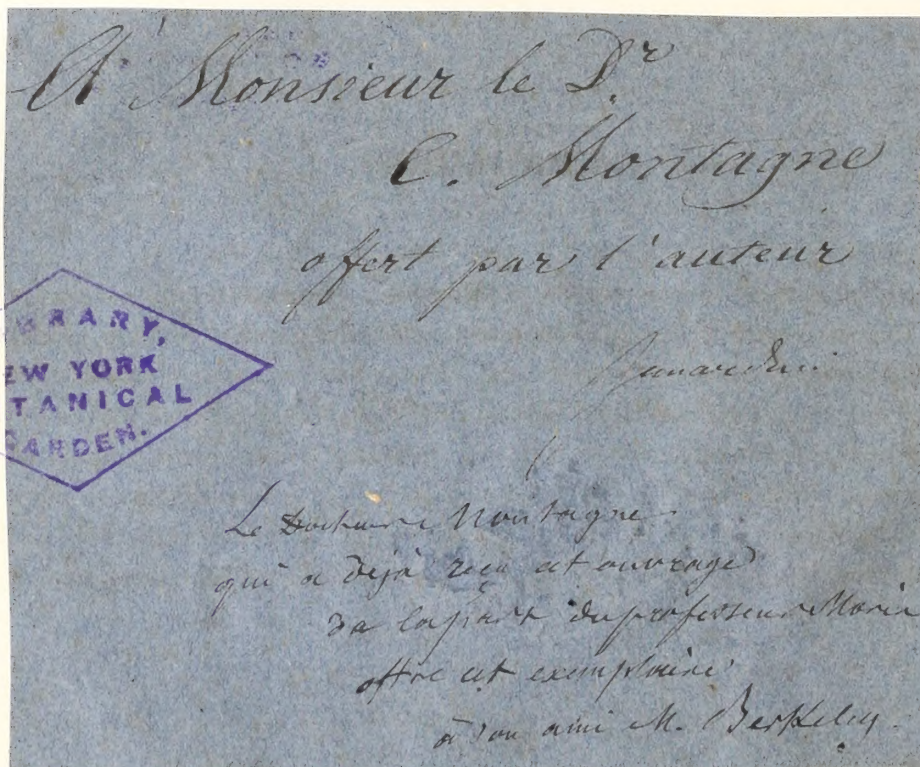 A Monsieur le Dr.
C. Montagne
offert par l'auteur
BRARY,
EW YORK
TANICAL
GARDEN.
Le Docteur Montagne
qui a déjà reçu cet ouvrage
de la part du professeur Moris
offre cet exemplaire
à son ami M. Berkeley.